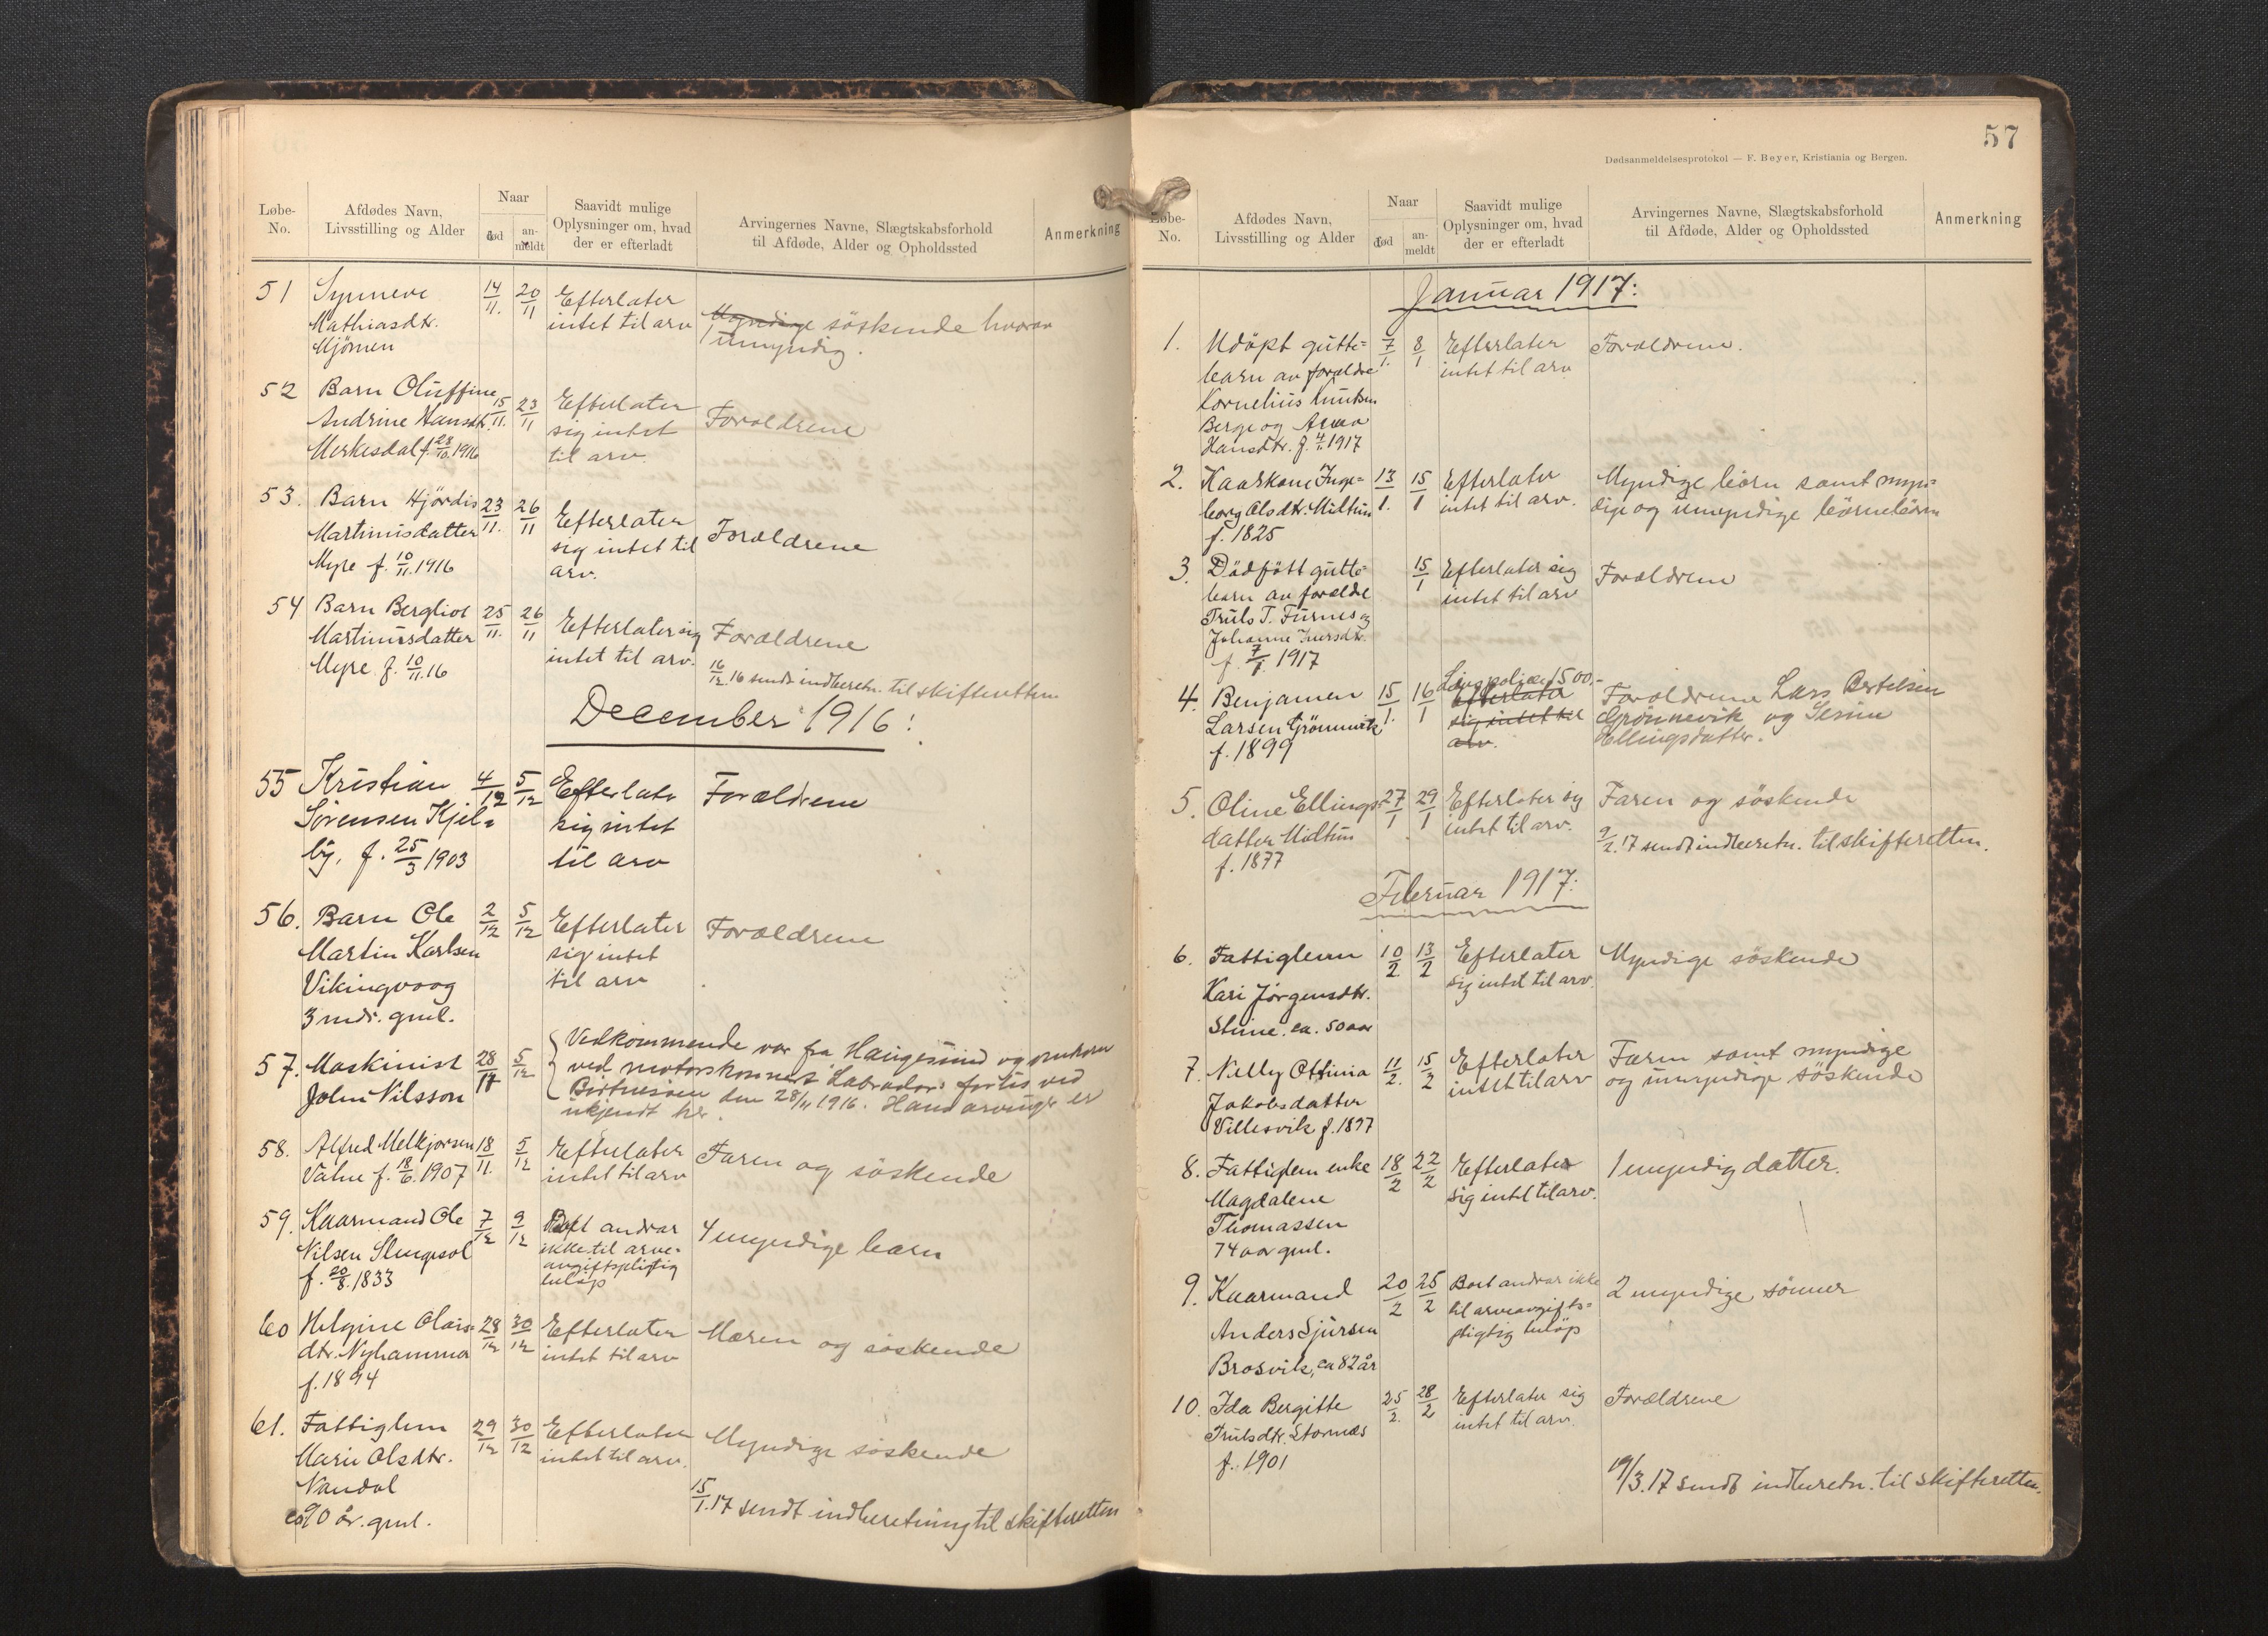 Løbe-
No.
Afdødes Navn,
Livsstilling og Alder
Naar
død
an-
meldt
Saavidt mulige
Oplysninger om, hvad
der er efterladt
Arvingernes Navne, Slægtskabsforhold
til Afdøde, Alder og Opholdssted
Anmerkning
51 Synneve 14/11. 20/11 Efterlater
Mathiasdtr. intet til arv Myndige söskende hvorav
Mjömen 1 umyndig.
52 Barn Oluffine 15/11. 23/11 Efterlater Foræeldrene
Andrine Hansdtr. sig intet
Merkesdal f. 28/10. 1916 til arv.
53. Barn Hjördis 23/11. 26/11 Efterlater Forældrene
Martinusdatter sig intet til
Myre f. 10/11. 1916 arv.
54 Barn Bergliot 25/11. 26/11 Efterlater sig Forældrene
Martinusdatter intet til arv.
Myre f. 10/11. 16 16/12. 16 sendt indberetn. til skifteretten
December 1916:
55 Kristian 4/12 5/12 Efterlater Forældrene
Sørensen Kjel= sig intet
by, f. 25/3 1903 til arv
56. Barn Ole 2/12 5/12 Efterlater Forældrene
Martin Karlsen sig intet
Vikingvaag til arv
3 mdr. gml.
57. Maskinist 28/11 5/12 Vedkommende var fra Haugesund og omkom
John Nilsson ved motorskonnert "Labrador's" forlis ved
den 28/11 1916. Hans arvinger er
ukjendt her.
58. Alfred Melkjorsen 18/11. 5/12 Efterlater Faren og söskende
f. 18/6. 1907 intet til arv
59. Kaarmand Ole 7/12 9/12 Boet andrar 4 myndige barn
Nilsen Slengesol ikke til arve=
f. 20/8. 1833 avgiftspligtig
beløp
60 Helgine Olais= 28/12 30/12 Efterlater Moren og söskende
dtr. Nyhammer intet til arv
f. 1894
61. Fattiglem 29/12 30/12 Efterlater Myndige söskende
Marie Olsdtr. intet til arv.
Nandal
ca 90 år. gml. 15/1. 17 sendt indberetning til skifteretten
57
Dødsanmeldelsesprotokol — F. Beyer, Kristiania og Bergen.
Løbe-
No.
Afdødes Navn,
Livsstilling og Alder
Naar
død
an-
meldt
Saavidt mulige
Oplysninger om, hvad
der er efterladt
Arvingernes Navne, Slægtskabsforhold
til Afdøde, Alder og Opholdssted
Anmerkning
Januar 1917:
1. Udöpt gutte= 7/1. 8/1 Efterlater Forældrene.
barn av forældre intet til arv
Kornelius Knutsen
Berge og Anna
Hansdtr. f. 4/1. 1917
2. Kaarkone Inge= 13/1. 15/1 Efterlater Myndige börn samt myn=
borg Olsdtr. Midtun intet til arv. dige og umyndige börnebörn
f. 1825
3. Dödfött gutte= 15/1 Efterlater sig Forældrene
barn av forældre intet til arv
Truls T. Furnes og
Johanne Iversdtr.
f. 7/1. 1917
4. Benjamen 15/1. 16/1 Livspolice 1500,- Forældrene Lars Bertelsen
Larsen Grönnevik Efterlater sig intet til arv. Grönnevik og Serine
f. 1899 Ellingsdatter.
5. Oline Ellings= 27/1 29/1 Efterlater sig Faren og söskende
datter Midtun intet til arv.
f. 1877 9/2. 17 sendt indberetn. til skifteretten.
Februar 1917:
6. Fattiglem 10/2 13/2 Efterlater Myndige söskende
Kari Jörgensdtr. sig intet til arv.
Stine. ca. 50 aar
7. Nelly Ottinia 11/2. 15/2 Efterlater Faren samt myndige
Jakobsdatter intet til arv og umyndige söskende
Villesvik f. 1897
8. Fattiglem enke 18/2 22/2 Efterlater 1 myndig datter.
Magdalene sig intet til arv.
Thomassen
74 aar gml.
9. Kaarmand 20/2 25/2 Boet andrar ikke 2 myndige sönner
Anders Sjursen til arveavgifts=
Brosvik, ca 82 år pligtig beløp
10. Ida Bergitte 25/2. 28/2 Efterlater sig Forældrene
Trulsdtr. Stornæs intet til arv.
f. 1901
19/3. 17 sendt indberetn. til skifteretten.